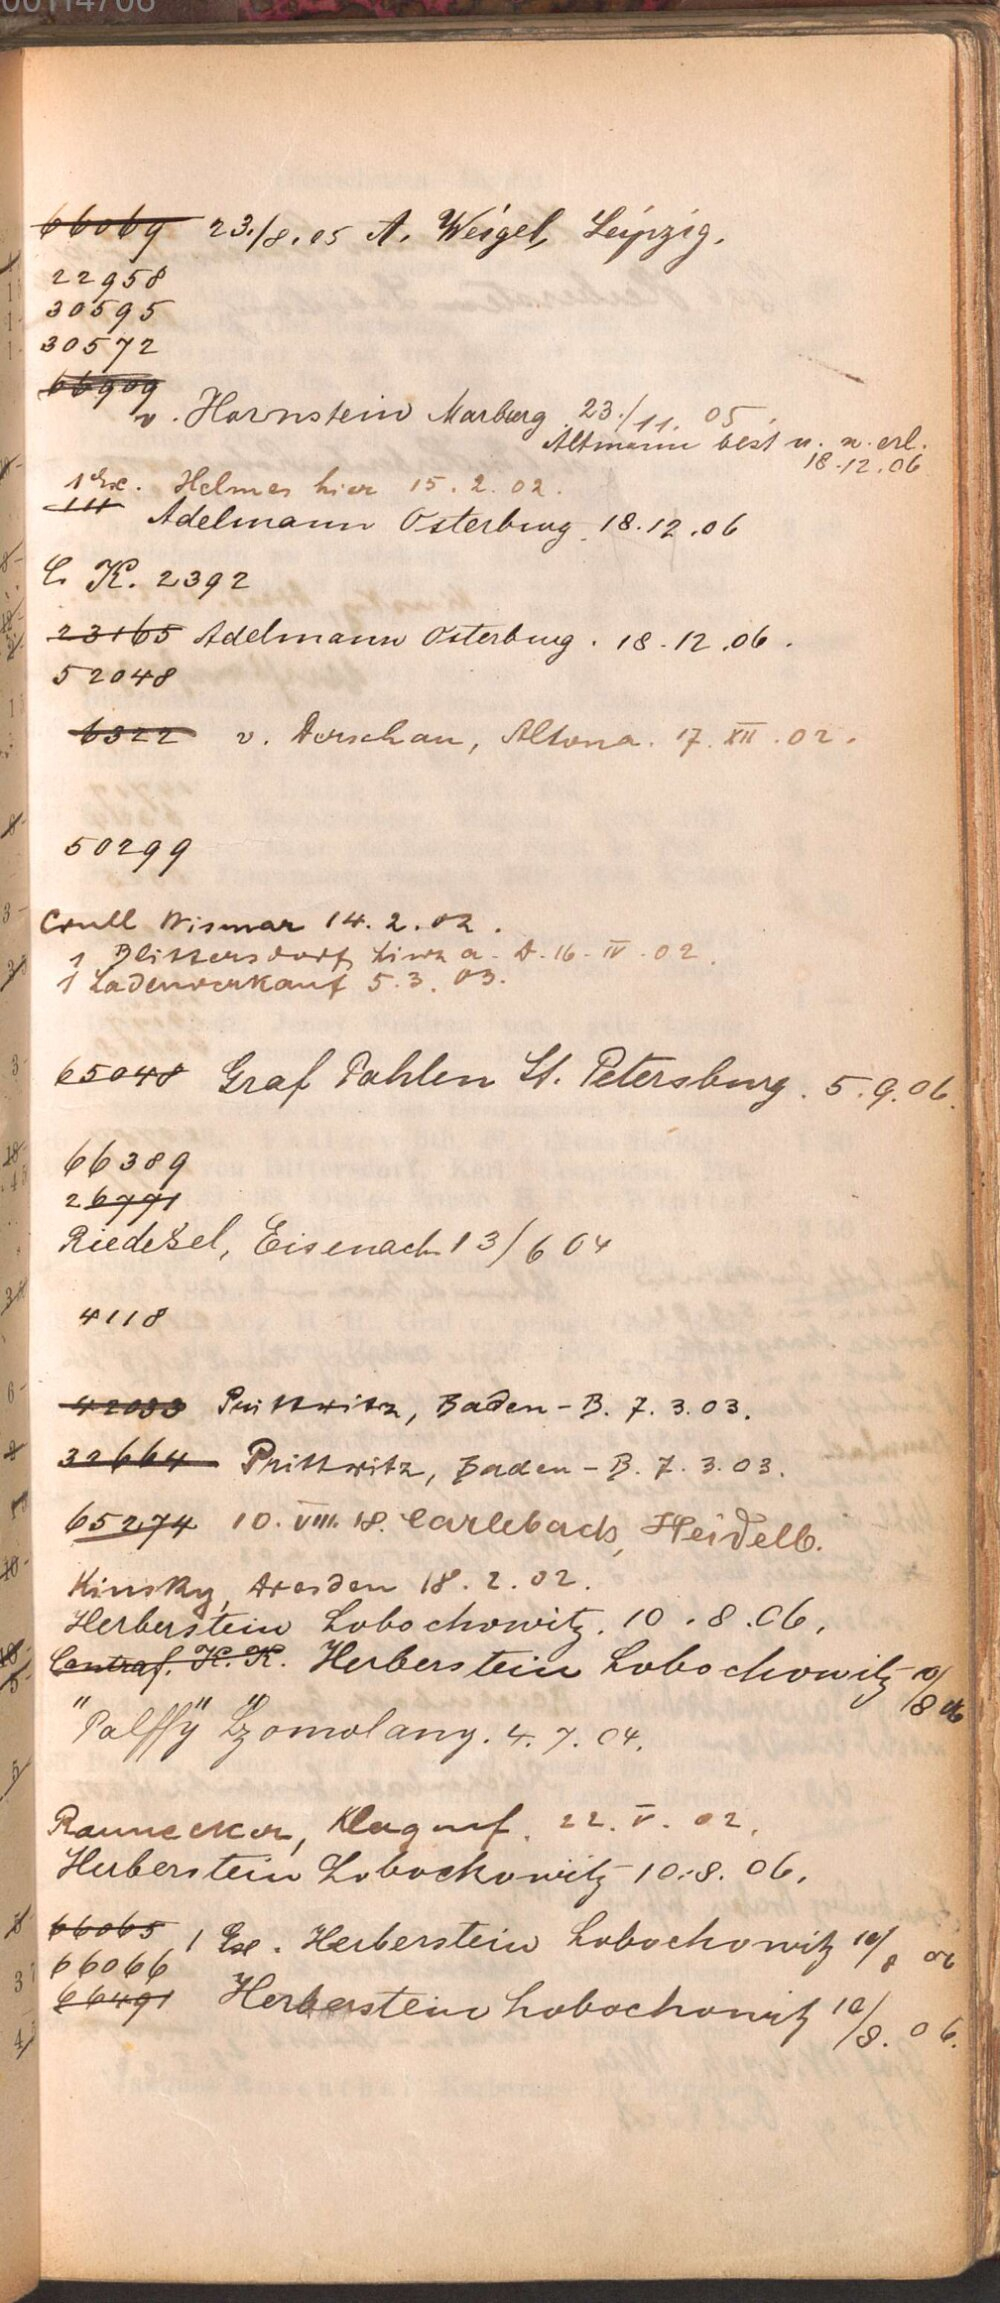 00114706
66069 23./8.05 A. Weigel, Leipzig.
22958
30595
30572
66909
v. Hornstein Marburg 23./11. 05.
Altmann best u. n. erl.
18.12.06
1 Ex. Helmes hier 15.2.02.
Adelmann Osterburg 18.12.06
C. K. 2392
23165 Adelmann Osterburg. 18.12.06.
52048
6322 v. Derschau, Altona. 17. XII. 02.
50299
Crull Wismar 14.2.02.
1 Blittersdorf, Linz a. D. 16. IV. 02.
1 Ladenverkauf 5.3.03.
65048 Graf Pahlen St. Petersburg. 5.9.06.
66389
26771
Riedesel, Eisenach 13/6 04
4118
42033 Prittwitz, Baden-B. 7.3.03.
32664 Prittwitz, Baden-B. 7.3.03.
65274 10. VIII. 18. Carlebach, Heidelb.
Kinsky, Dresden 18.2.02.
Herberstein Lobochowitz. 10.8.06.
Contraf. K. K. Herberstein Lobochowitz 10/8 06
"Palffy" Szomolany. 4.7.04.
Raunecker, Klagenf. 22. V. 02.
Herberstein Lobochowitz 10.8.06.
66065 1 Ex. Herberstein Lobochowitz 10/8 06
66066
66491 Herberstein Lobochowitz 10/8. 06.